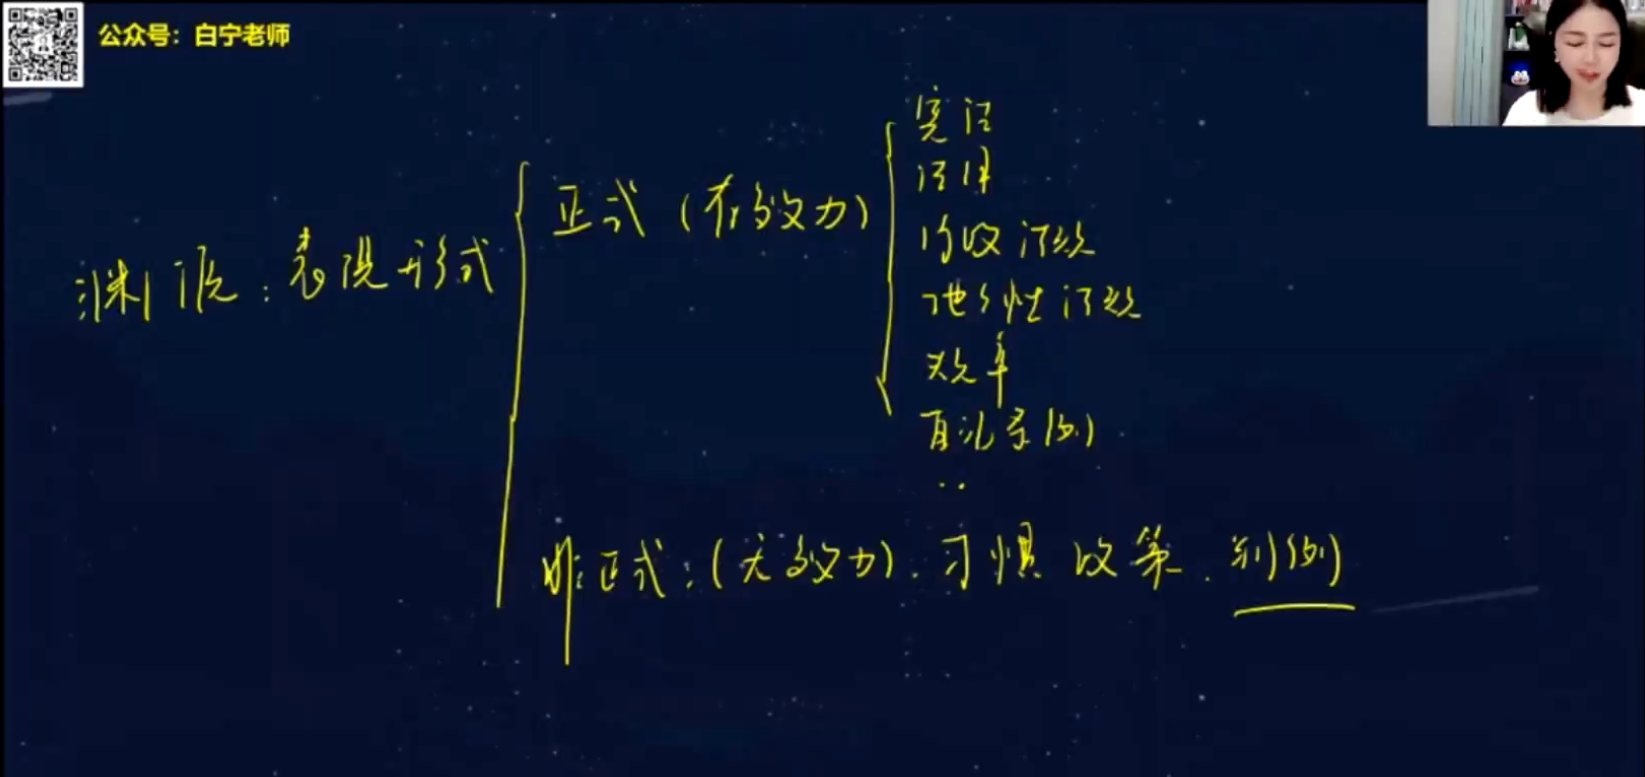 公众号：白宁老师
渊源：表现形式
正式（有效力）
宪法
法律
行政法规
地方性法规
规章
自治条例
..
非正式：（无效力）.习惯 政策.判例